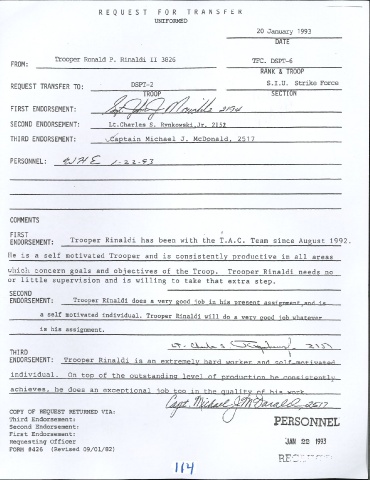 REQUEST FOR TRANSFER
UNIFORMED
20 January 1993
DATE
FROM: Trooper Ronald P. Rinaldi II 3826 TFC. DSPT-6
RANK & TROOP
REQUEST TRANSFER TO: DSPT-2 S.I.U. Strike Force
TROOP SECTION
FIRST ENDORSEMENT: Sgt.
SECOND ENDORSEMENT: Lt.Charles S. Rynkowski,Jr. 2152
THIRD ENDORSEMENT: Captain Michael J. McDonald, 2517
PERSONNEL: 1-22-93
COMMENTS
FIRST
ENDORSEMENT: Trooper Rinaldi has been with the T.A.C. Team since August 1992.
He is a self motivated Trooper and is consistently productive in all areas
which concern goals and objectives of the Troop. Trooper Rinaldi needs no
or little supervision and is willing to take that extra step.
SECOND
ENDORSEMENT: Trooper Rinaldi does a very good job in his present assignment,and is
a self motivated individual. Trooper Rinaldi will do a very good job whatever
is his assignment.
Lt. Charles S.
THIRD
ENDORSEMENT: Trooper Rinaldi is an extremely hard worker and self-motivated
individual. On top of the outstanding level of production he consistently
achieves, he does an exceptional job too in the quality of his work.
Capt. Michael J. McDonald 2517
COPY OF REQUEST RETURNED VIA:
Third Endorsement:
Second Endorsement:
First Endorsement:
Requesting Officer
FORM #426 (Revised 09/01/82)
PERSONNEL
JAN 22 1993
114